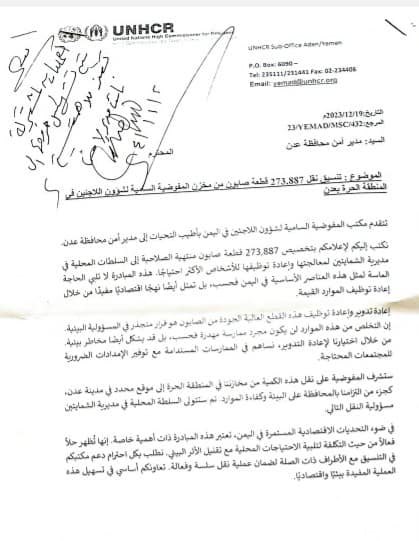 UNHCR
United Nations High Commissioner for Refugees
UNHCR Sub-Office Aden/Yemen
P.O. Box: 6090 –
Tel: 235111/231441 Fax: 02-234406
Email: yemad@unhcr.org
التاريخ: 2023/12/19م
المرجع: 23/YEMAD/MSC/432
السيد: مدير أمن محافظة عدن
المحترم
الموضوع: تنسيق نقل 273,887 قطعة صابون من مخزن المفوضية السامية لشؤون اللاجئين في
المنطقة الحرة بعدن
تتقدم مكتب المفوضية السامية لشؤون اللاجئين في اليمن بأطيب التحيات إلى مدير أمن محافظة عدن.
نكتب إليكم لإعلامكم بتخصيص 273,887 قطعة صابون منتهية الصلاحية إلى السلطات المحلية في
مديرية الشمايتين لمعالجتها وإعادة توظيفها للأشخاص الأكثر احتياجًا. هذه المبادرة لا تلبي الحاجة
الماسة لمثل هذه العناصر الأساسية في اليمن فحسب، بل تمثل أيضًا نهجًا اقتصاديًا مفيدًا من خلال
إعادة توظيف الموارد القيمة.
إعادة تدوير وإعادة توظيف هذه القطع العالية الجودة من الصابون هو قرار متجذر في المسؤولية البيئية.
إن التخلص من هذه الموارد لن يكون مجرد ممارسة مهدرة فحسب، بل قد يشكل أيضًا مخاطر بيئية.
من خلال اختيارنا لإعادة التدوير، نساهم في الممارسات المستدامة مع توفير الإمدادات الضرورية
للمجتمعات المحتاجة.
ستشرف المفوضية على نقل هذه الكمية من مخازننا في المنطقة الحرة إلى موقع محدد في مدينة عدن،
كجزء من التزامنا بالمحافظة على البيئة وكفاءة الموارد. ثم ستتولى السلطة المحلية في مديرية الشمايتين
مسؤولية النقل التالي.
في ضوء التحديات الاقتصادية المستمرة في اليمن، تعتبر هذه المبادرة ذات أهمية خاصة. إنها تُظهر حلاً
فعالاً من حيث التكلفة لتلبية الاحتياجات المحلية مع تقليل الأثر البيئي. نطلب بكل احترام دعم مكتبكم
في التنسيق مع الأطراف ذات الصلة لضمان عملية نقل سلسة وفعالة. تعاونكم أساسي في تسهيل هذه
العملية المفيدة بيئيًا واقتصاديًا.